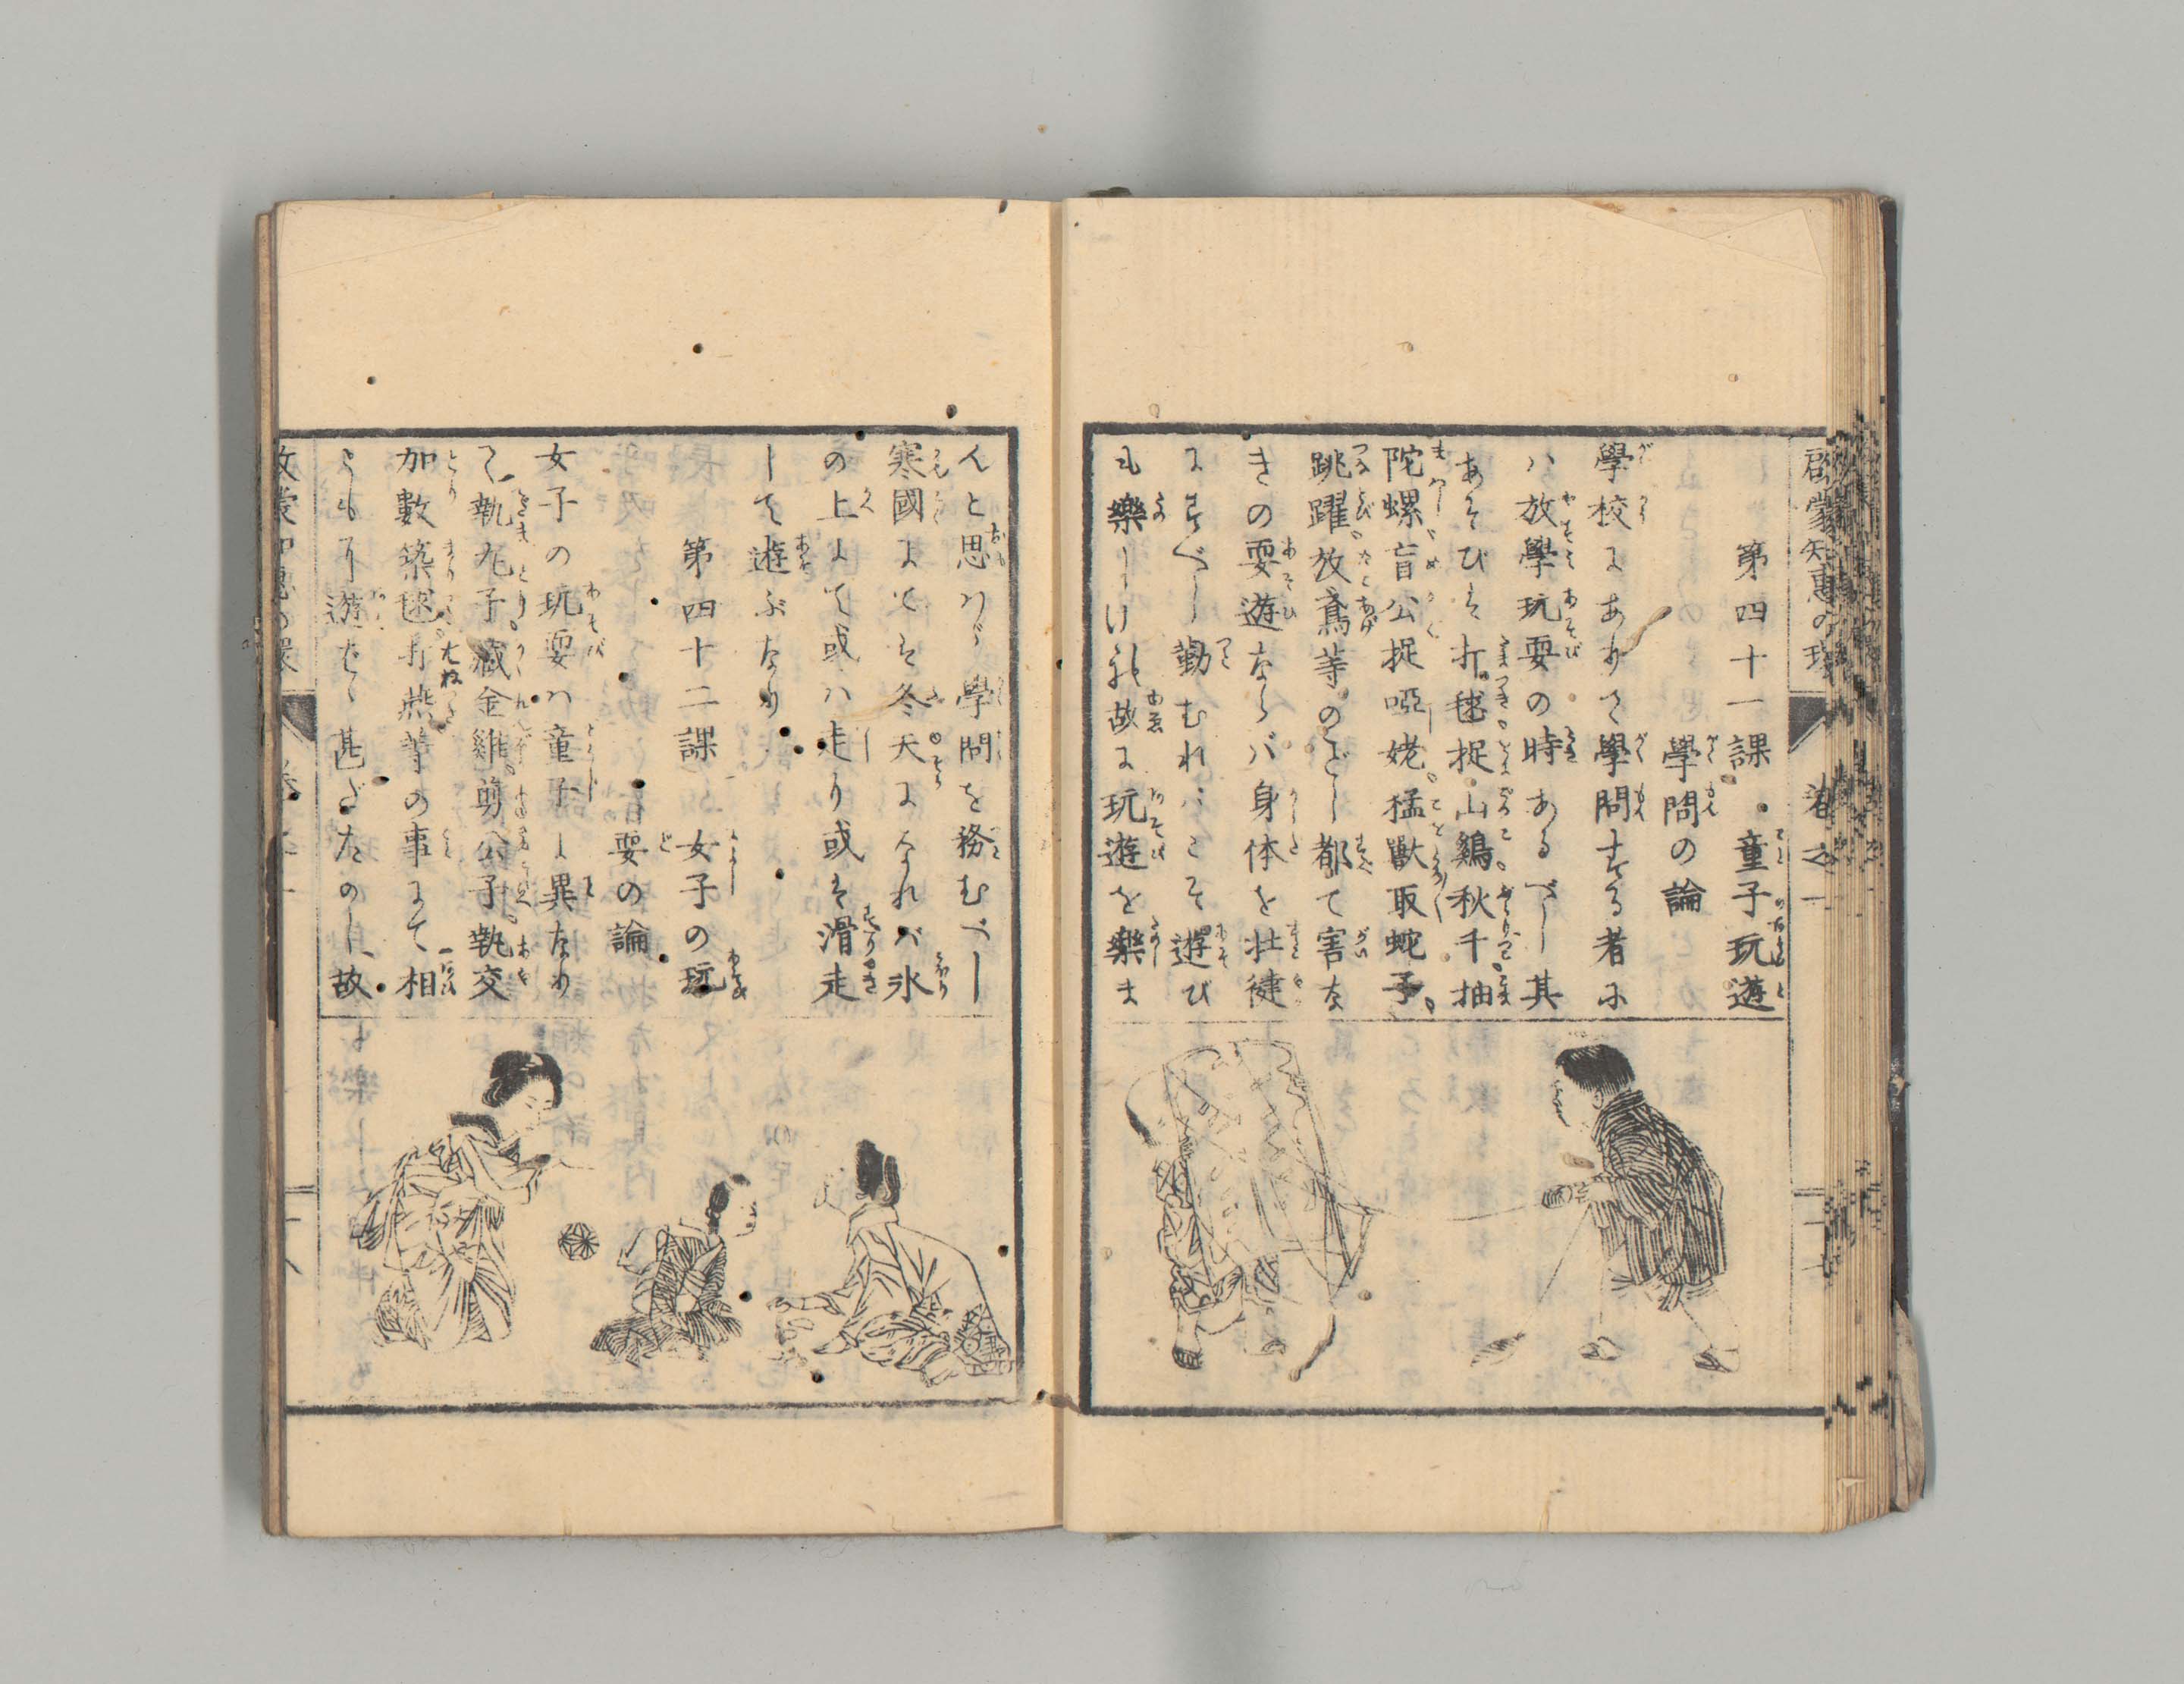 啓蒙知恵の環 巻之一
第四十一課 童子玩遊
學問の論
學校にありて學問する者に
ハ放學玩耍の時あるべし其
あそびは打毬捉山鷄秋千抽
陀螺盲公捉啞姥猛獸取蛇子
跳躍放鳶等のごとし都て害な
きの耍遊ならバ身体を壮健
にすべし勤むれバこそ遊び
も樂しけれ故に玩遊を樂ま
んと思ハヾ學問を務むべし
寒國にてハ冬天になれバ氷
の上にて或ハ走り或は滑走
して遊ぶなり
第四十二課 女子の玩
耍の論
女子の玩耍ハ童子と異なり
て執九子藏金雞剪公子執交
加數築毬打燕等の事にて相
ともに遊ぜば甚だたのし故